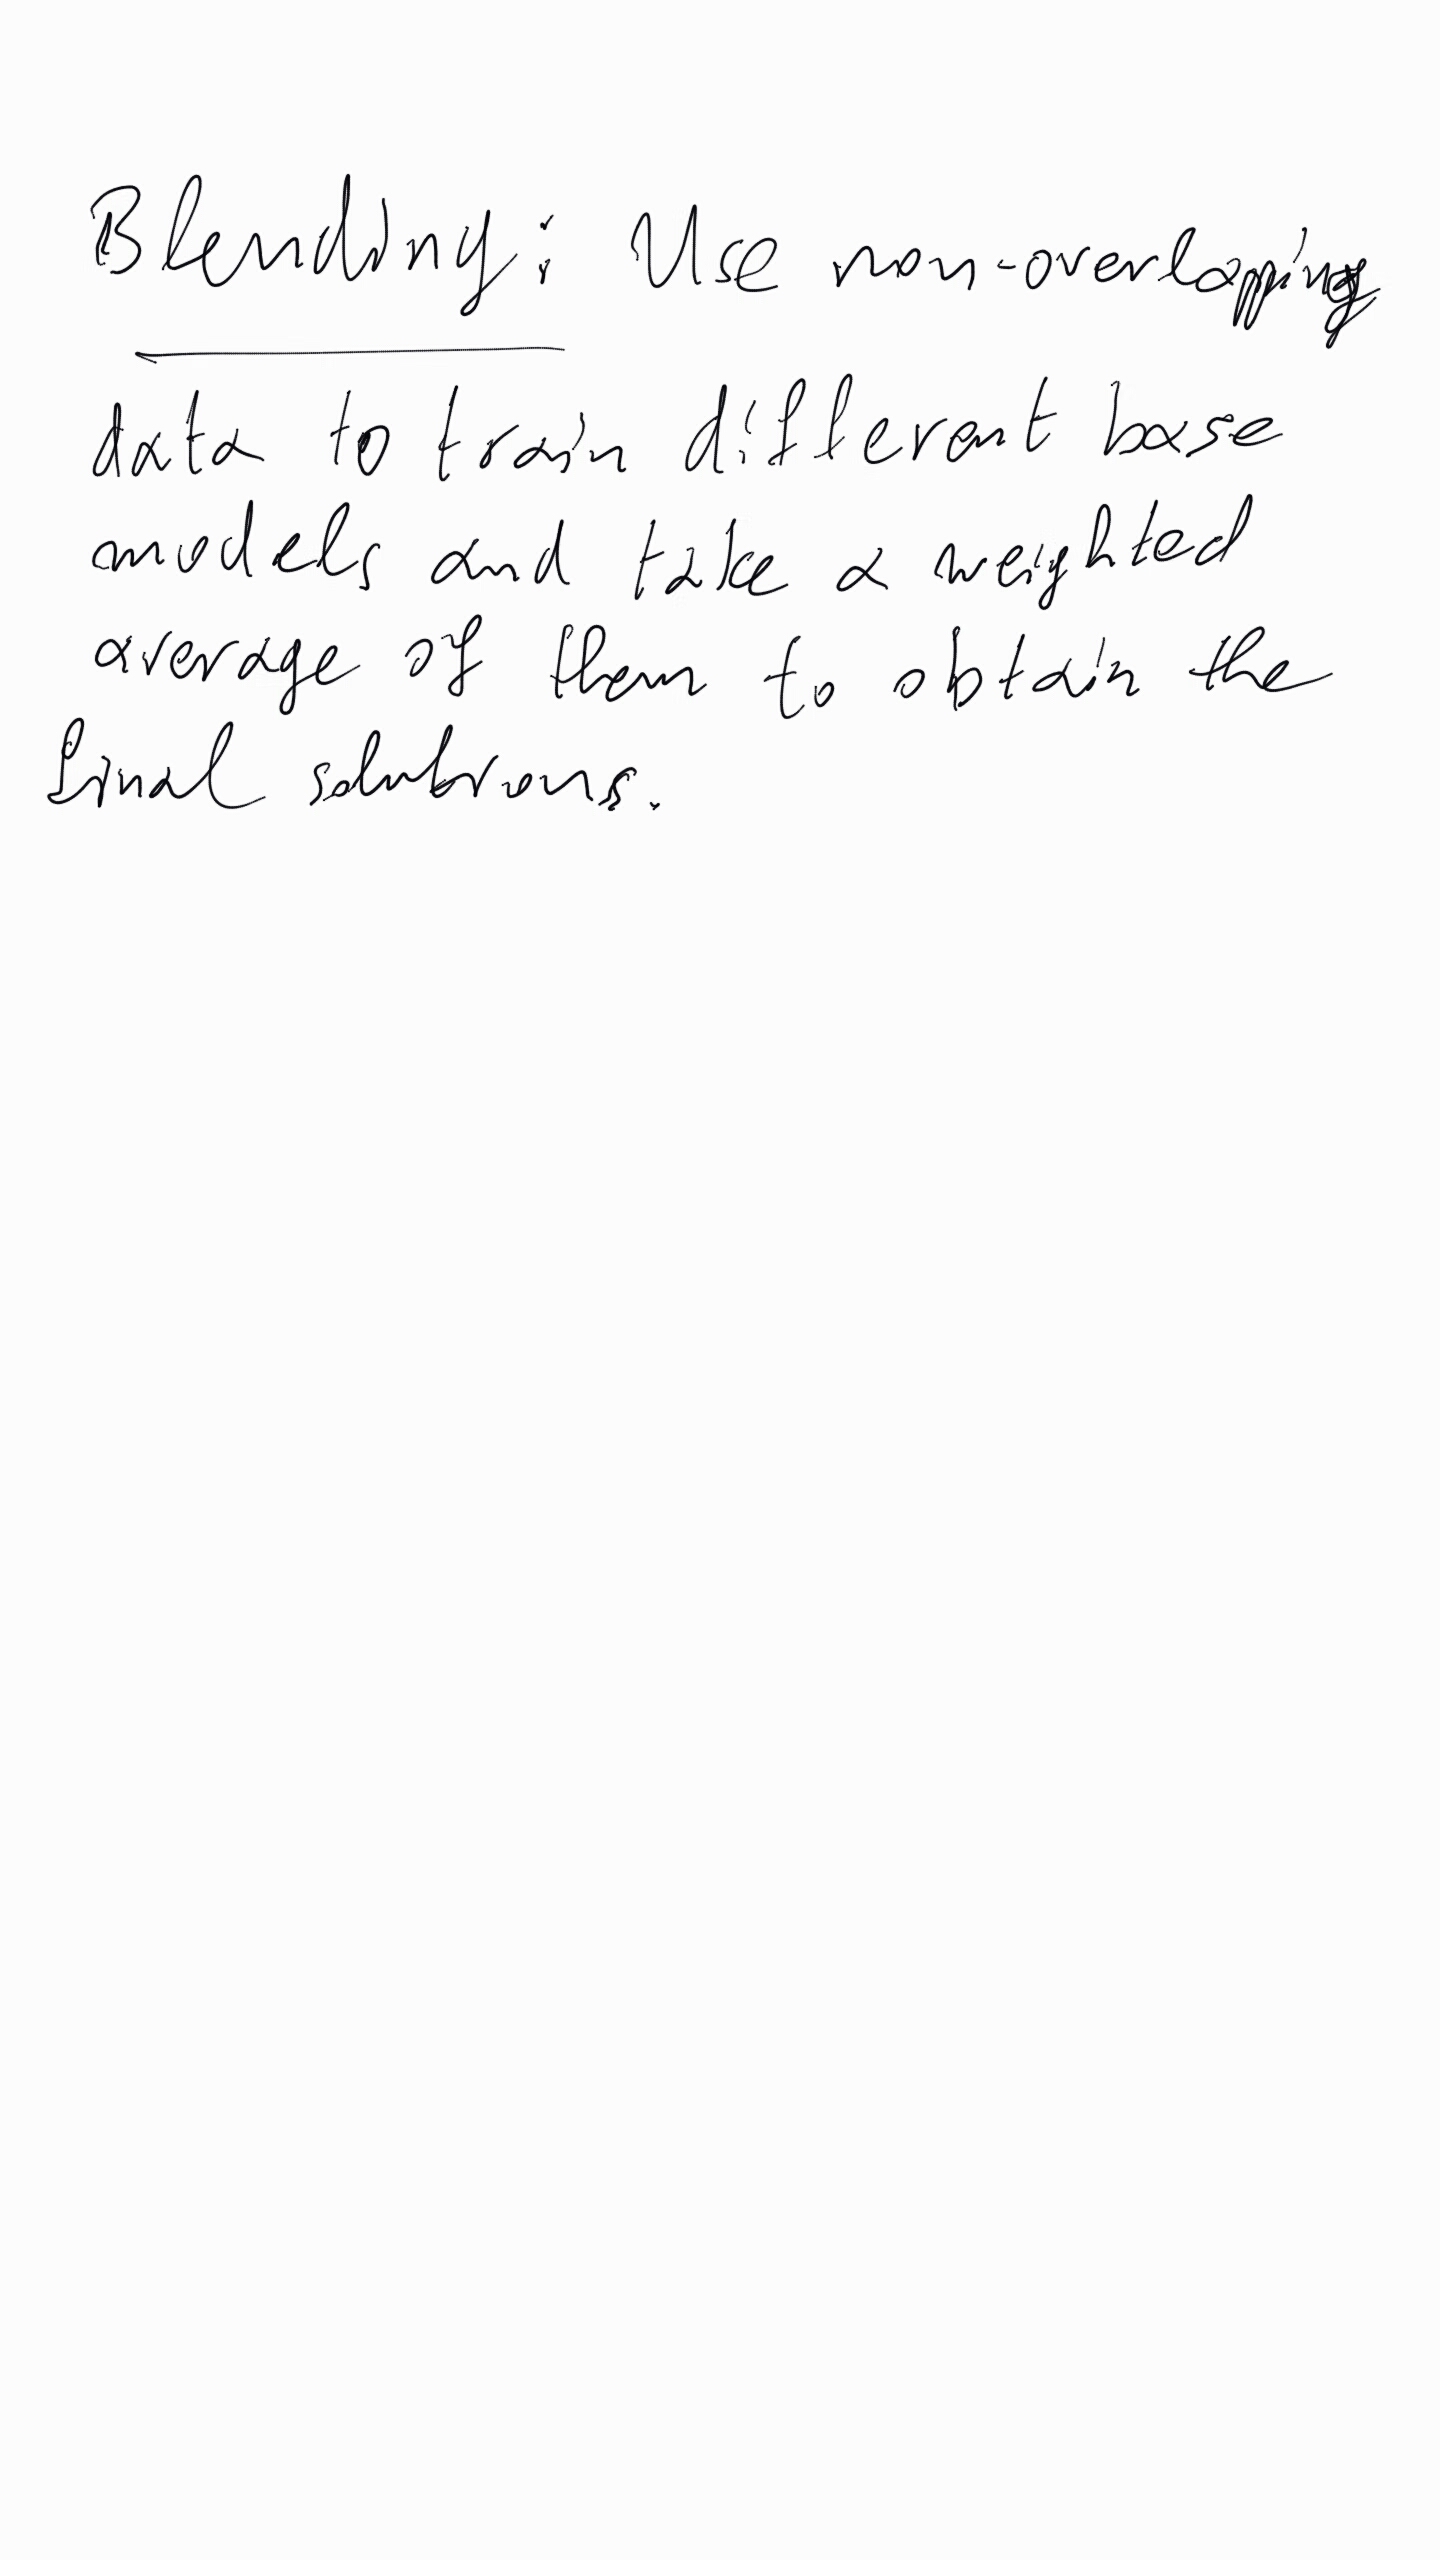 Blending: Use non-overlapping
data to train different base
models and take a weighted
average of them to obtain the
final solutions.